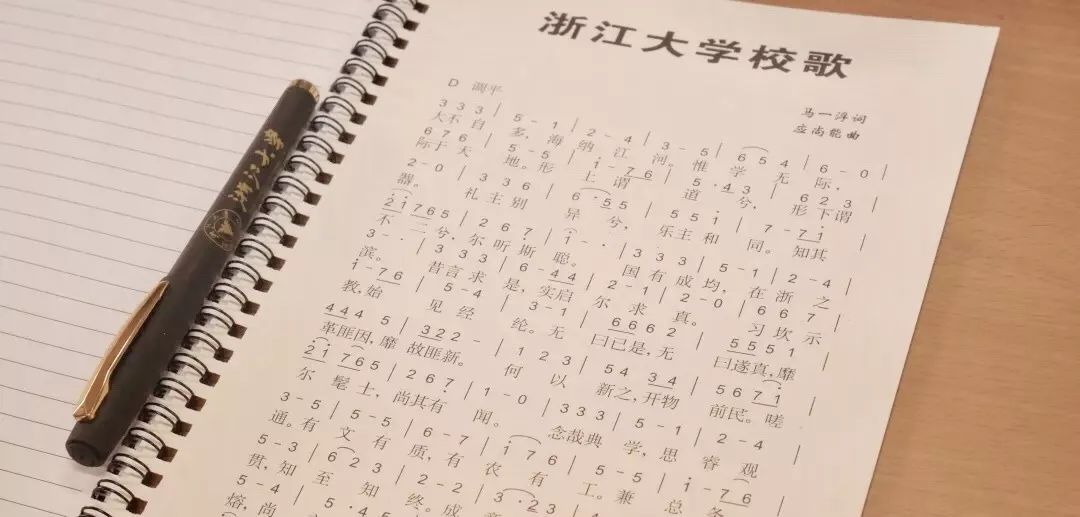 浙江大学校歌
马一浮词
D 调平
应尚能曲
3 3 3 | 5 - 1 | 2 - 4 | 3 - 5 | 6 5 4 | 6 - 0 |
大不自 多, 海 纳 江 河。惟 学 无 际,
6 7 6 | 5 - 5 | 1 - 7 6 | 5 · 4 3 | 6 2 3 |
际于天 地。形 上 谓 道 兮, 形下谓
2 - 0 | 3 3 6 | 6 · 5 5 | 5 5 1 | 7 - 7 1 |
器。 礼主别 异 兮, 乐主和 同。知其
2 1 7 6 5 | 2 6 7 | 1 - · | 3 3 3 | 5 - 1 | 2 - 4 |
不 二 兮, 尔听斯 聪。 国有成 均, 在 浙 之
3 - · | 3 3 3 | 6 - 4 4 | 2 - 1 | 2 - 0 | 6 6 7 |
滨。 昔言求 是, 实启 尔 求 真。 习坎示
1 - 7 6 | 5 - 4 | 3 - 1 | 6 6 6 2 | 5 5 5 1 |
教,始 见 经 纶。无 曰已是,无 曰遂真,靡
4 4 4 5 | 3 2 2 - | 1 2 3 | 5 4 3 4 | 5 6 7 1 |
革匪因,靡 故匪新。 何 以 新之,开物 前民。嗟
2 1 7 6 5 | 2 6 7 | 1 - 0 | 3 3 3 | 5 - 1 | 2 - 4 |
尔 髦 士, 尚其有 闻。 念哉典 学, 思 睿 观
3 - 5 | 5 - 5 | 6 - 7 | 1 7 6 | 5 - 5 | 1 - 7 6 |
通。有 文 有 质,有 农 有 工。兼 总 条
5 - 3 | 6 2 3 | 2 - 2 | 3 · 2 3
贯, 知 至 知 终。成
5 - 4
熔,尚
浙江大学